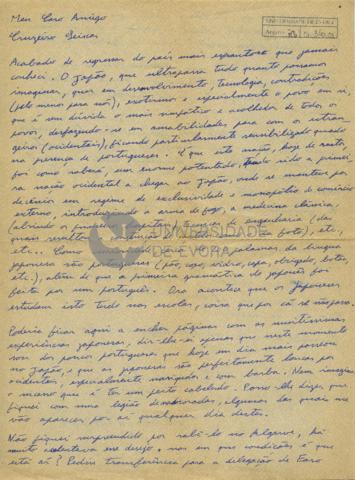 Meu Caro Amigo
Cruzeiro Seixas
UNIVERSIDADE DE ÉVORA
Acabado de regressar do país mais espantoso que jamais
conheci. O Japão, que ultrapassa tudo quanto possamos
imaginar, quer em desenvolvimento, tecnologia, contradições
(pelo menos para nós), exotismo e especialmente o povo em si,
que é sem dúvida o mais simpático e acolhedor de todos os
povos, desfazendo-se em amabilidades para com os estran
geiros (ocidentais), ficando particularmente sensibilizado quando
na presença de portugueses. É que esta nação, hoje de rastos,
foi como sabes, um enorme potentado, tendo sido a primei
ra nação ocidental a chegar ao Japão, onde se manteve por
decénios em regime de exclusividade e monopólio de comércio
externo, introduzindo a arma de fogo, a medicina clássica,
(abrindo o primeiro de engenharia (das
quais foto), etc.,
etc... Como palavras da língua
japonesa são portuguesas (pão, copo, vidro, capa, obrigado, botão,
etc.), além de que a primeira gramática do japonês foi
feita por um português. Ora acontece que os japoneses
estudam isto tudo nas escolas, coisa que por cá se não faz.
Poderia ficar aqui a encher páginas com as muitíssimas
experiências japonesas, dir-lhe-ei apenas que neste momento
sou dos poucos portugueses que hoje em dia mais
no Japão, e que as japonesas são perfeitamente loucas por
ocidentais, especialmente narigudos e com barba. Nem imagina
o sucesso que é ter um peito cabeludo. Como lhe dizia, que
fiquei com uma legião de namoradas, algumas das quais me
vão aparecer por aí qualquer dia destes.
Não fiquei surpreendido por sabê-lo no Algarve, há
muito acalentava esse desejo, mas em que condições é que
está aí? Pediu transferência para a delegação de Faro